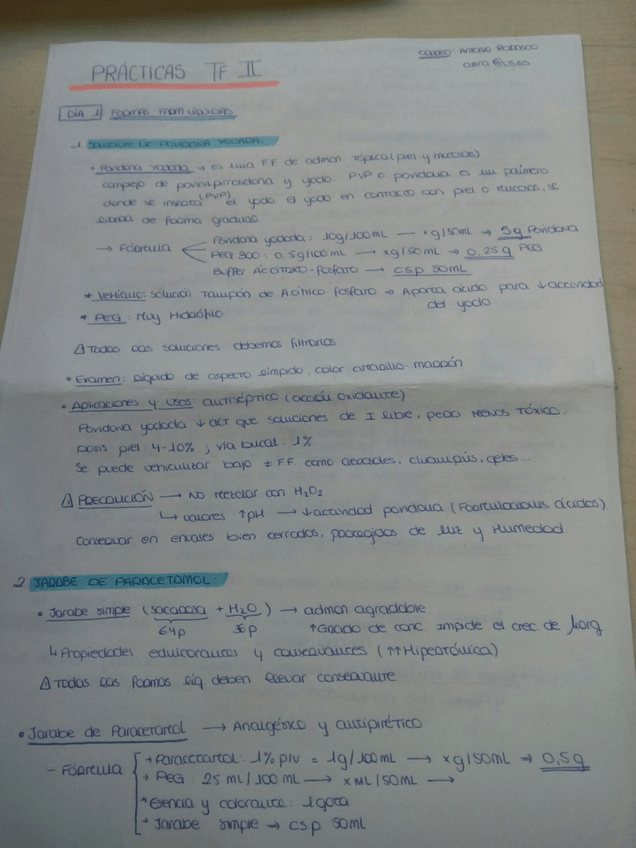 PRÁCTICAS TF II
CORREO: ANTONIO RABASCO
@us.es
DÍA 1 FORMAS FARM LÍQUIDAS
1. SOLUCIÓN DE POVIDONA YODADA:
• Povidona Yodada → es una F.F de admon tópica (piel y mucosas)
complejo de povinilpirrolidona y yodo PVP o povidona es un polímero
donde se inserta (PVP) el yodo El yodo en contacto con piel o mucosas, se
libera de forma gradual
→ Fórmula
Povidona yodada: 10g/100mL — xg/50mL → 5g Povidona
PEG 300: 0,5g/100mL → xg/50mL → 0,25g PEG
Buffer Ac. cítrico-fosfato → csp 50mL
* VEHÍCULO: Solución Tampón de A.cítrico-fosfato → Aporta ácido para ↓ actividad
del yodo
* PEG: Muy Hidrófilo
⚠ Todas las soluciones debemos filtrarlas
• Examen: Líquido de aspecto límpido, color amarillo-marrón
• Aplicaciones y usos: antiséptico (acción oxidante)
Povidona yodada ↓ act que soluciones de I libre, pero menos tóxico.
Dosis piel: 4-10% ; vía bucal: 1%
Se puede vehiculizar bajo ≠ F.F como apósitos, champús, geles...
⚠ PRECAUCIÓN → No mezclar con H₂O₂
↳ valores ↑pH → ↓actividad povidona (Formulaciones ácidas)
Conservar en envases bien cerrados, protegidos de luz y Humedad
2 JARABE DE PARACETAMOL:
• Jarabe simple (sacarosa + H₂O) → admon agradable
64p 36p ↑Grado de conc. impide el crec de μorg
↳ Propiedades edulcorantes y conservantes (↑↑Hipertónica)
⚠ Todas las formas líq deben llevar conservante
• Jarabe de Paracetamol → Analgésico y antipirético
- Fórmula
→ Paracetamol: 1% p/v = 1g/100mL → xg/50mL → 0,5g
→ PEG: 25 mL/100 mL → x mL/50mL →
→ Esencia y colorante: 1gota
→ Jarabe simple → csp 50mL